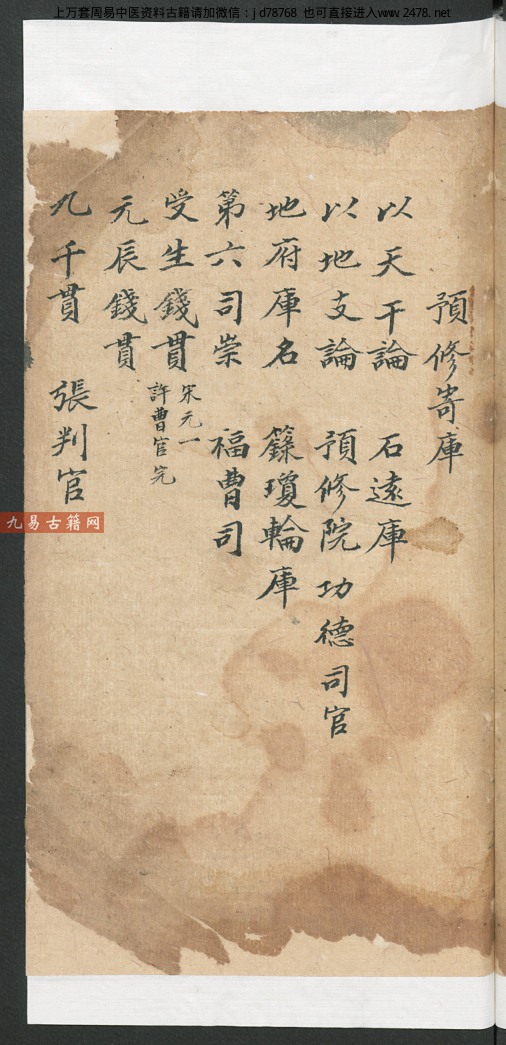 上万套周易中医资料古籍请加微信：jd78768 也可直接进入www.2478.net
預修寄庫
以天干論 石遠庫
以地支論 預修院功德司官
地府庫名 籙瓊輪庫
第六司崇 福曹司
受生錢貫 宋元一
許曹官完
元辰錢貫
九千貫 張判官
九易古籍网